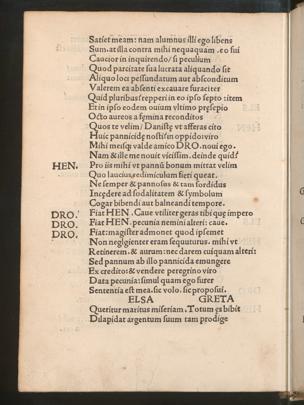 Satiet meam: nam alumnus illi ego libens
Sum. at illa contra mihi nequaquam. eo fui
Caucior in inquirendo/ si peculium
Quod parcitate sua lucrata aliquando sit
Aliquo loci pessundatum aut absconditum
Valerem ea absenti excauare furaciter
Quid pluribus? repperi in eo ipso septo: item
Et in ipso eodem ouium vltimo presepio
Octo aureos a femina reconditos
Quos te velim/ Daniste vt afferas cito
Huic pannicide nostri in oppido viro
Mihi meisq; valde amico DRO. noui ego.
Nam & ille me nouit vicissim. deinde quid?
HEN. Pro iis mihi vt pannū bonum mittat velim
Quo laucius, edimiculum fieri queat.
Ne semper & pannosus & tam sordidus
Incedere ad sodalitatem & symbolum
Cogar bibendi aut balneandi tempore.
DRO. Fiat HEN. Caue vtiliter geras tibi que impero
DRO. Fiat HEN. pecunia nemini alteri: caue.
DRO. Fiat: magister admonet quod ipsemet
Non neglgienter eram sequuturus. mihi vt
Retinerem. & aurum: nec darem cuiquam alteri:
Sed pannum ab illo pannicida emungere
Ex creditor: & vendere peregrino viro
Data pecunia: simul quam ego furer
Sententia est mea. sic volo. sic proposui.
ELSA GRETA
Queritur maritus miseriam. Totum es bibit
Dilapidat argentum suum tam prodige